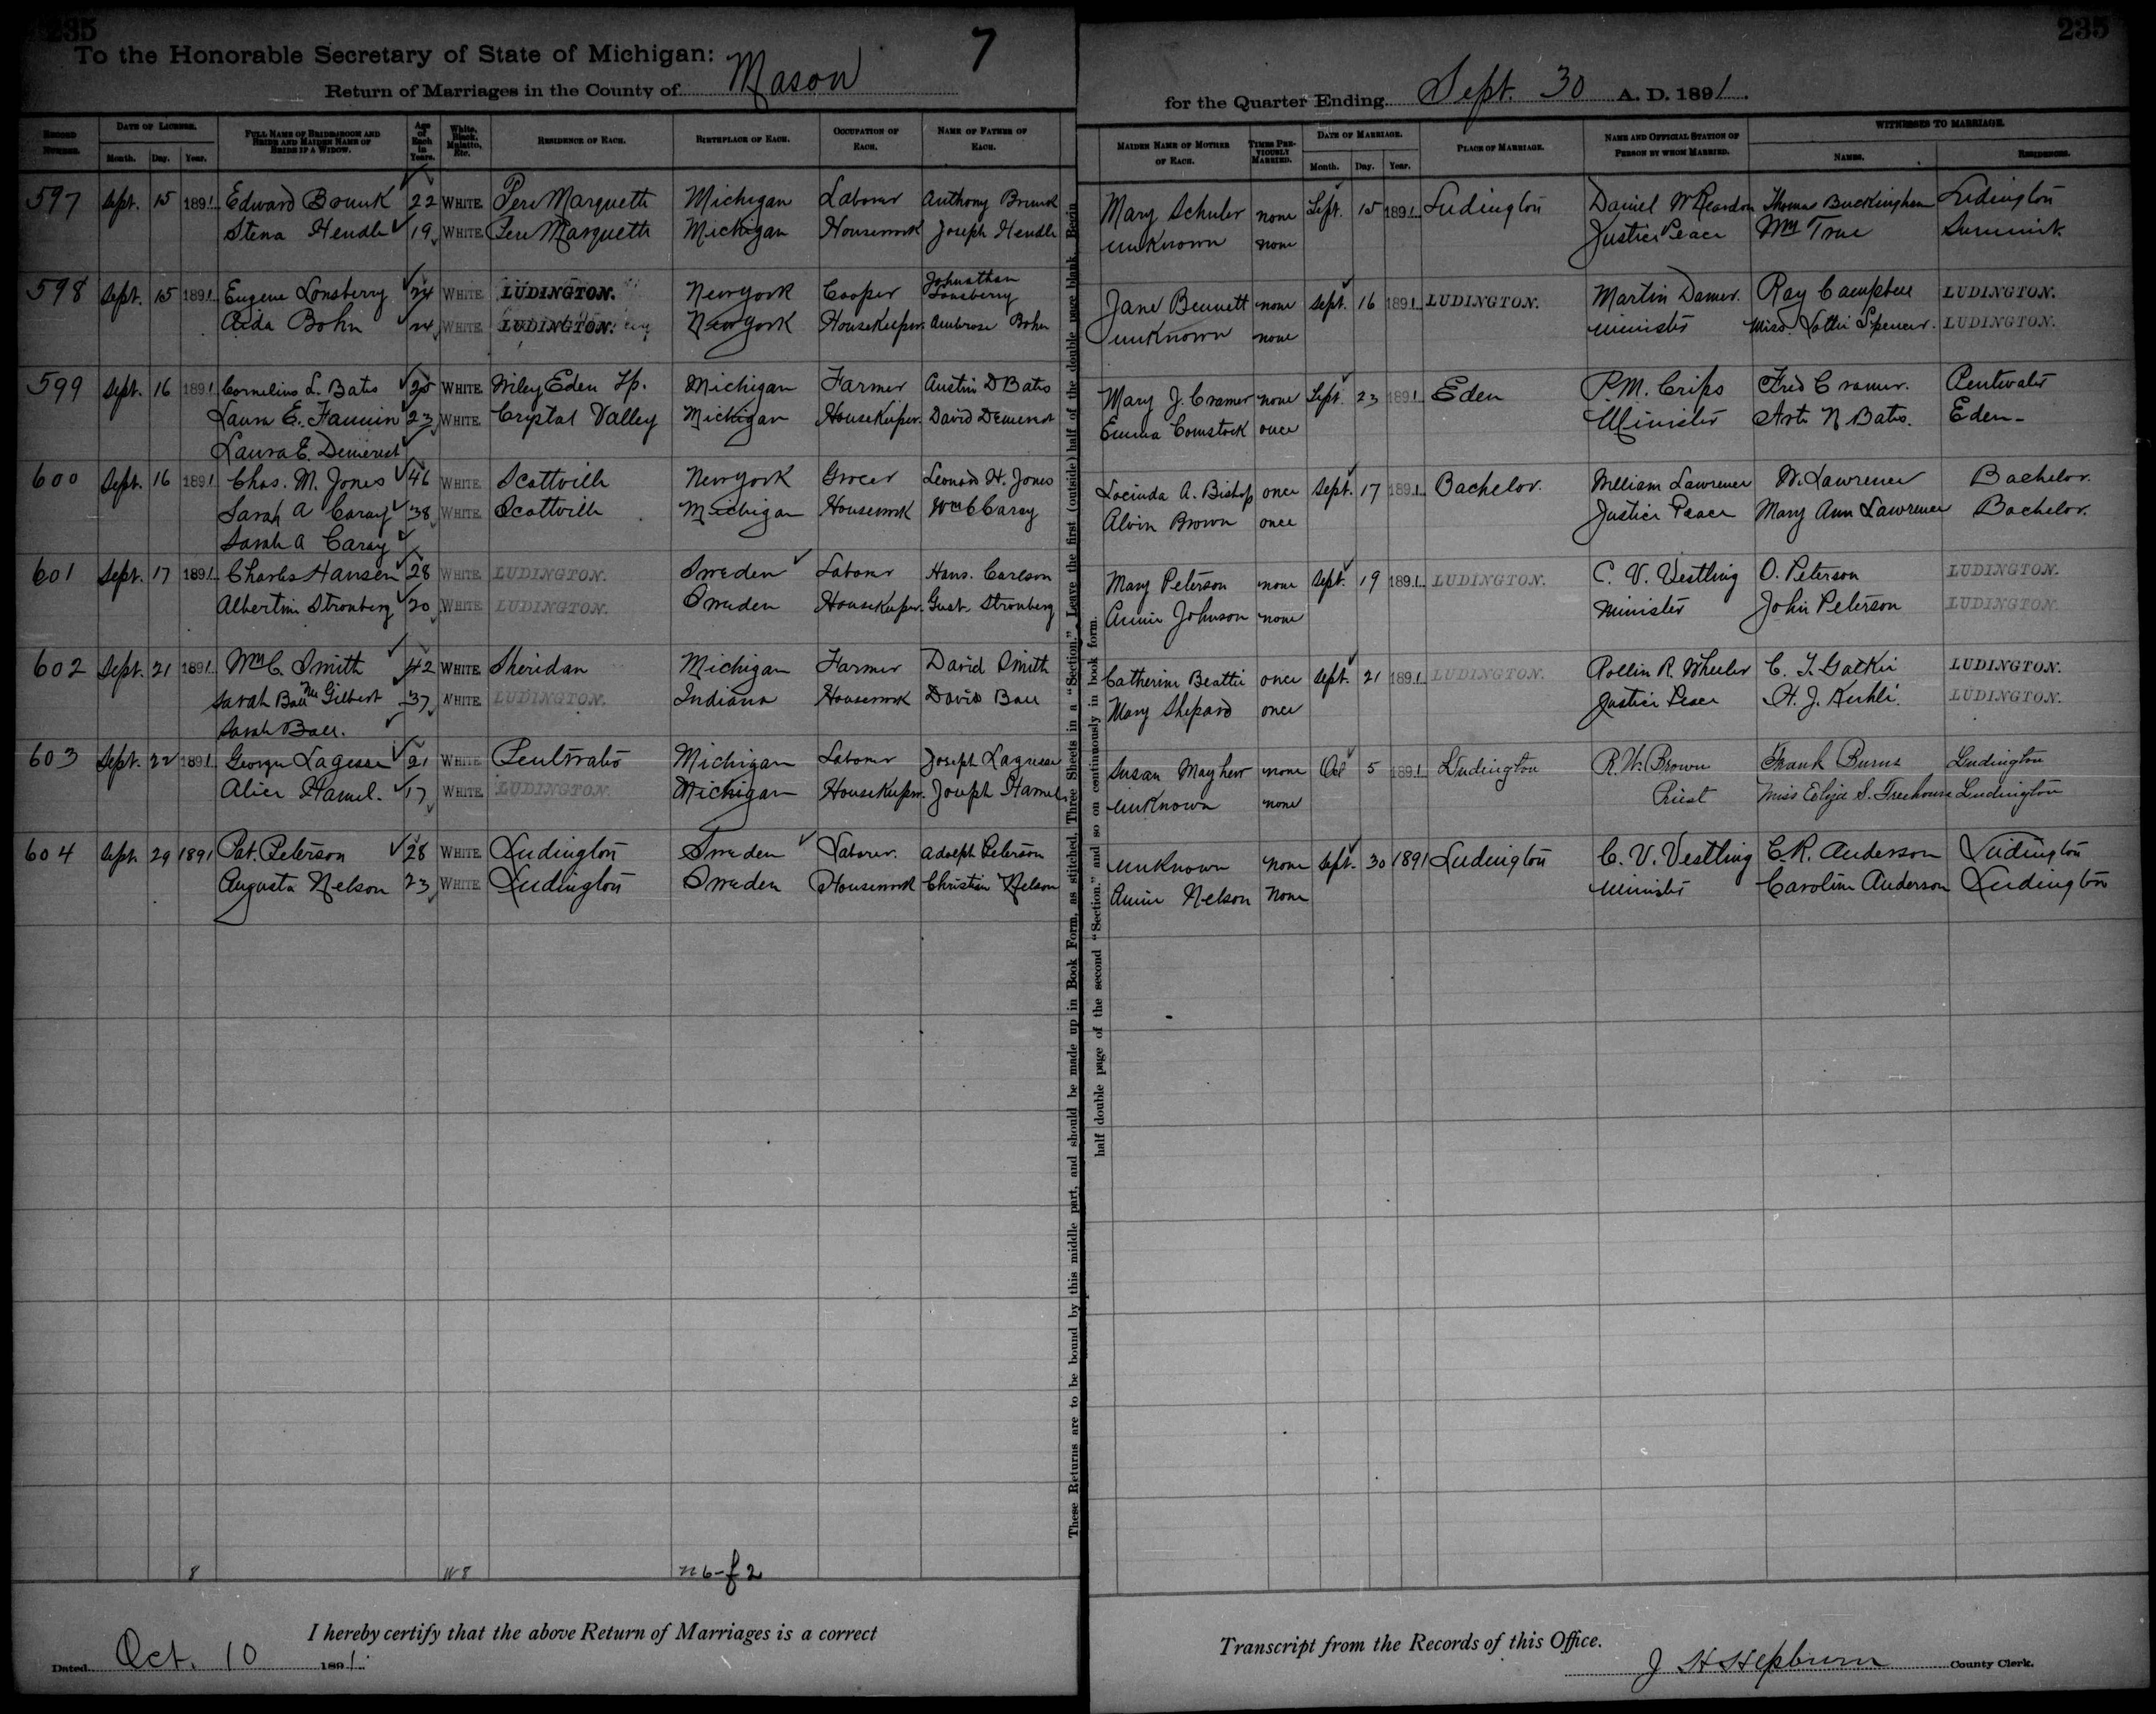 235
To the Honorable Secretary of State of Michigan: 7
Return of Marriages in the County of Mason
RECORD NUMBER. DATE OF LICENSE. Month. Day. Year. FULL NAME OF BRIDEGROOM AND BRIDE AND MAIDEN NAME OF BRIDE IF A WIDOW. Age of Each in Years. White, Black, Mulatto, Etc. RESIDENCE OF EACH. BIRTHPLACE OF EACH. OCCUPATION OF EACH. NAME OF FATHER OF EACH.
597 Sept. 15 1891 Edward Brunk 22 WHITE Pere Marquette Michigan Laborer Anthony Brunk
Stena Hendle 19 WHITE Pere Marquette Michigan Housework Joseph Hendle
598 Sept. 15 1891 Eugene Lonsberry 24 WHITE LUDINGTON. New York Cooper Johnathan Lonsberry
Aida Bohn 24 WHITE LUDINGTON. New York HouseKeeper Ambrose Bohn
599 Sept. 16 1891 Cornelius L. Bates 25 WHITE Wiley Eden Tp. Michigan Farmer Austin D Bates
Laura E. 23 WHITE Crystal Valley Michigan HouseKeeper David Demerest
Laura E. Demerest
600 Sept. 16 1891 Chas. M. Jones 46 WHITE Scottville New York Grocer Leonard H. Jones
Sarah A Caray 38 WHITE Scottville Michigan Housework Wm C Caray
Sarah A Caray
601 Sept. 17 1891 Charles Hansen 28 WHITE LUDINGTON. Sweden Laborer Hans. Carlson
Albertine Stromberg 20 WHITE LUDINGTON. Sweden HouseKeeper Gust. Stromberg
602 Sept. 21 1891 Wm C. Smith 42 WHITE Sheridan Michigan Farmer David Smith
Sarah Ball Mc Gilbert 37 WHITE LUDINGTON. Indiana Housework David Ball
Sarah Ball.
603 Sept. 22 1891 George Lagesse 21 WHITE Pentwater Michigan Laborer Joseph Lagesse
Alice Hamel. 17 WHITE LUDINGTON. Michigan HouseKeeper Joseph Hamel
604 Sept. 29 1891 Pat. Peterson 28 WHITE Ludington Sweden Laborer. Adolph Peterson
Augusta Nelson 23 WHITE Ludington Sweden Housework Christian Nelson
8 W 8 n 6-f 2
I hereby certify that the above Return of Marriages is a correct
Dated Oct. 10 1891.
These Returns are to be bound by this middle part, and should be made up in Book Form, as stitched, Three Sheets in a "Section." Leave the first (outside) half of the double page blank. Begin
half double page of the second "Section." and so on continuously in book form.
235
for the Quarter Ending Sept. 30 A. D. 1891.
MAIDEN NAME OF MOTHER OF EACH. TIMES PREVIOUSLY MARRIED. DATE OF MARRIAGE. Month. Day. Year. PLACE OF MARRIAGE. NAME AND OFFICIAL STATION OF PERSON BY WHOM MARRIED. WITNESSES TO MARRIAGE. NAMES. RESIDENCES.
Mary Schuler none Sept. 15 1891 Ludington Daniel W Reardon Thomas Buckingham Ludington
unknown none Justice Peace Wm True Summit
Jane Bennett none Sept. 16 1891 LUDINGTON. Martin Damer. Ray Campbell LUDINGTON.
unknown none Minister Miss. Lottie Spencer. LUDINGTON.
Mary J. Cramer none Sept 23 1891 Eden P. M. Crips Fred Cramer. Pentwater
Emma Comstock once Minister Art N Bates. Eden
Locinda A. Bishop once Sept. 17 1891 Bachelor. William Lawrence W. Lawrence Bachelor.
Alvin Brown once Justice Peace Mary Ann Lawrence Bachelor.
Mary Peterson none Sept. 19 1891 LUDINGTON. C. V. Vestling O. Peterson LUDINGTON.
Annie Johnson none Minister John Peterson LUDINGTON.
Catherine Beattie once Sept. 21 1891 LUDINGTON. Rollin R. Wheeler C. T. LUDINGTON.
Mary Shepard once Justice Peace H. J. LUDINGTON.
Susan Mayhew none Oct 5 1891 Ludington R. W. Brown Frank Burns Ludington
unknown none Priest Miss S. Treehouse Ludington
unknown none Sept. 30 1891 Ludington C. V. Vestling C. R. Anderson Ludington
Annie Nelson none Minister Caroline Anderson Ludington
Transcript from the Records of this Office.
J H Hepburn County Clerk.